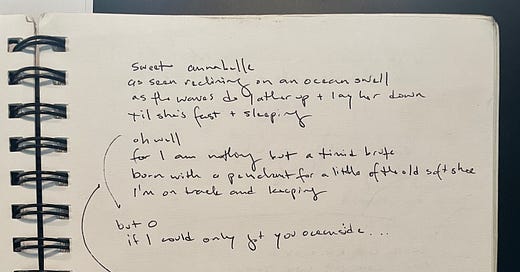 sweet annabelle
as seen reclining on an ocean swell
as the waves do gather up + lay her down
til she's fast + sleeping
oh well
for I am nothing but a timid brute
born with a penchant for a little of the old soft shoe
I'm on track and leaping
but O
if I could only get you oceanside...